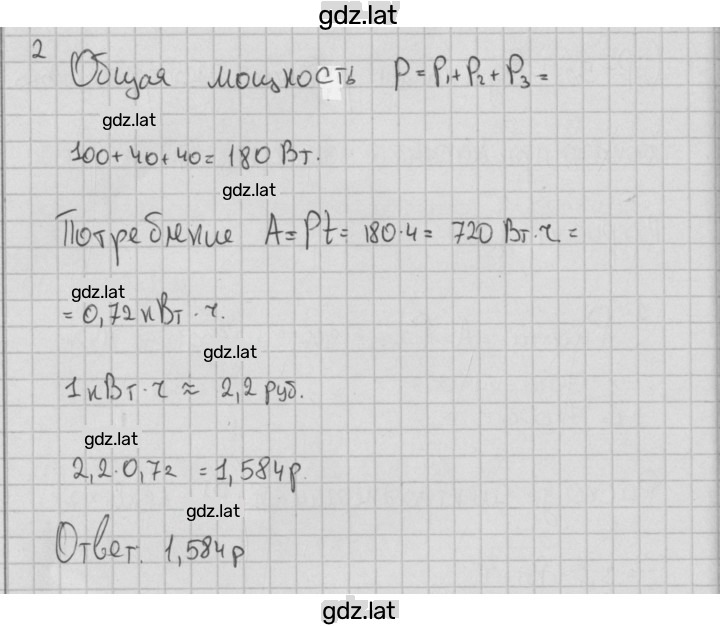 gdz.lat
2
Общая мощность P = P₁ + P₂ + P₃ =
gdz.lat
100 + 40 + 40 = 180 Вт.
gdz.lat
Потребление A = Pt = 180 · 4 = 720 Вт · ч =
gdz.lat
= 0,72 кВт · ч.
gdz.lat
1 кВт · ч ≈ 2,2 руб.
gdz.lat
2,2 · 0,72 = 1,584 р.
gdz.lat
Ответ. 1,584 р
gdz.lat